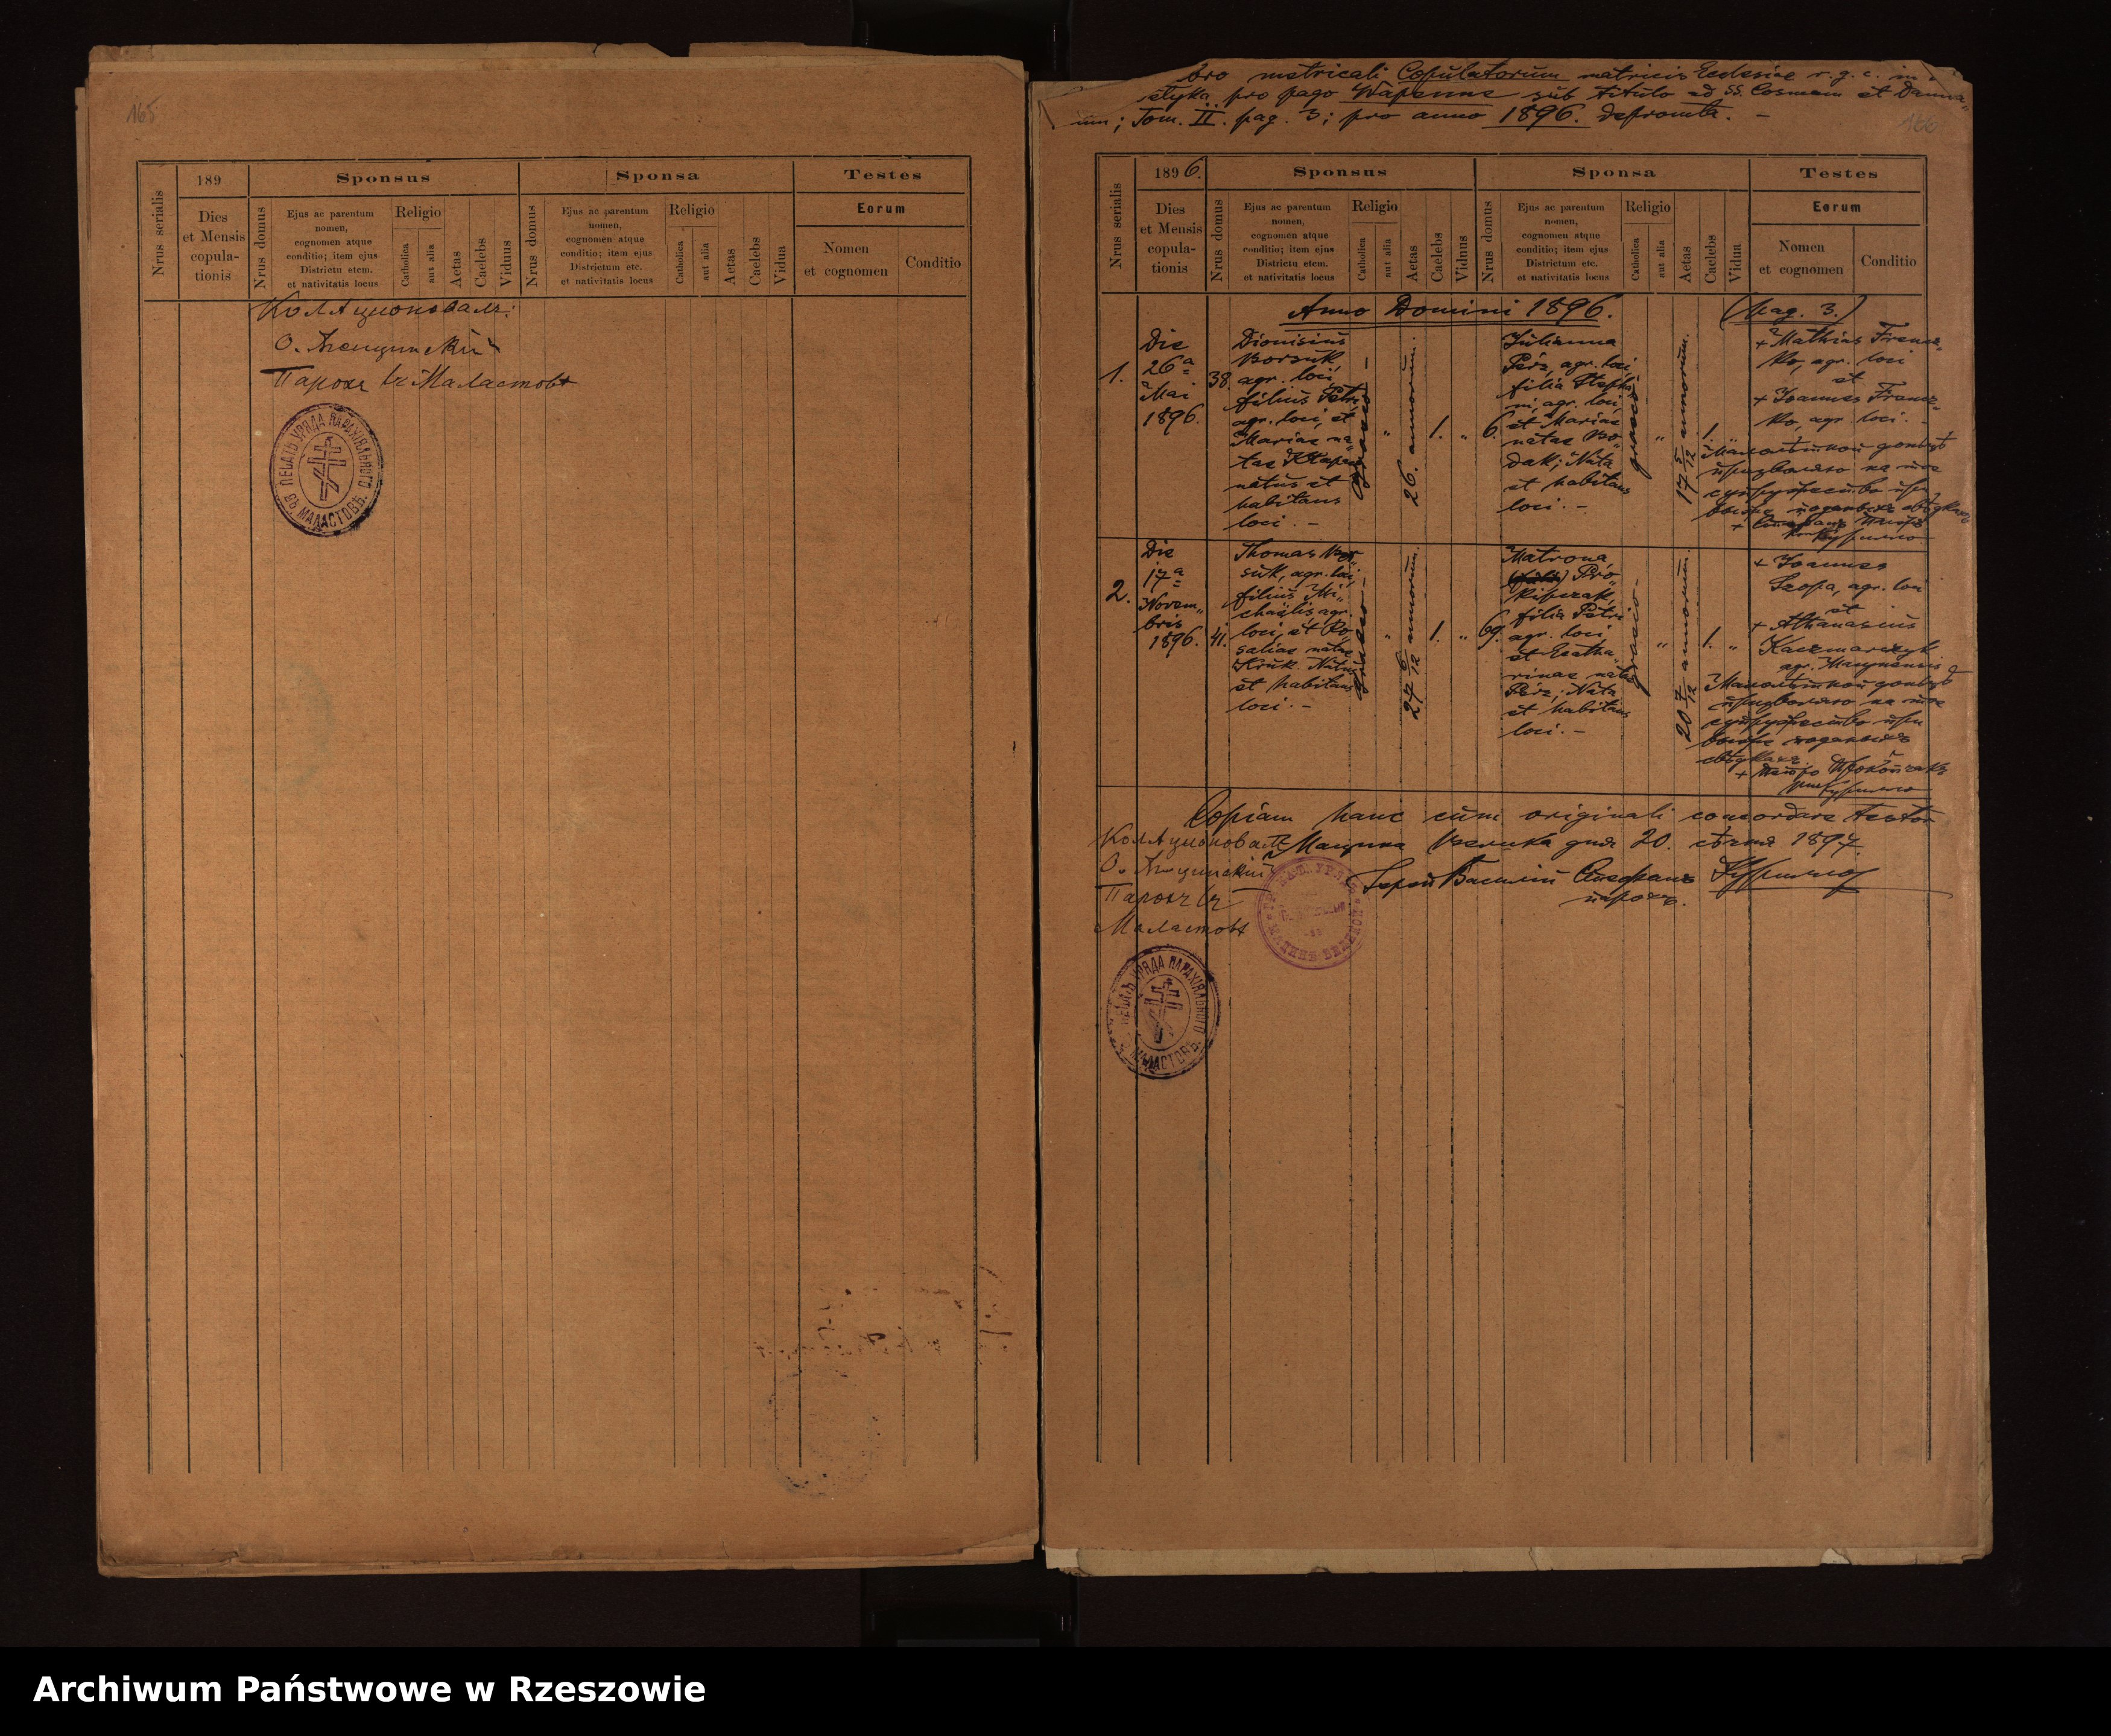 165
Nrus serialis
189
Dies
et Mensis
copula-
tionis
Sponsus
Nrus domus
Ejus ac parentum
nomen,
cognomen atque
conditio; item ejus
Districtu etcm.
et nativitatis locus
Religio
Catholica
aut alia
Aetas
Caelebs
Viduus
Sponsa
Nrus domus
Ejus ac parentum
nomen,
cognomen atque
conditio; item ejus
Districtum etc.
et nativitatis locus
Religio
Catholica
aut alia
Aetas
Caelebs
Vidua
Testes
Eorum
Nomen
et cognomen
Conditio
Коллаціоновалъ:
О.
Парохъ въ Маластовѣ
ПЕЧАТЬ УРЯДА ПАРАХІЯЛЬНОГО
ВЪ МАЛАСТОВѢ
bro metricali Copulatorum matricis Ecclesiae r. g. c. in
pro pago Wapenne sub titulo ad SS. Cosmam et Damia„
num; Tom. II. pag. 3; pro anno 1896. depromta. –
Nrus serialis
1896.
Dies
et Mensis
copula-
tionis
Sponsus
Nrus domus
Ejus ac parentum
nomen,
cognomen atque
conditio; item ejus
Districtu etcm.
et nativitatis locus
Religio
Catholica
aut alia
Aetas
Caelebs
Viduus
Sponsa
Nrus domus
Ejus ac parentum
nomen,
cognomen atque
conditio; item ejus
Districtum etc.
et nativitatis locus
Religio
Catholica
aut alia
Aetas
Caelebs
Vidua
Testes
Eorum
Nomen
et cognomen
Conditio
Anno Domini 1896.
(Pag. 3.)
1.
Die
26ª
Mai
1896.
38.
Dionisius
Borsuk
agr. loci,
filius Petri
agr. loci, et
Mariae na„
tae
natus et
habitans
loci. –
graeco –
„
26. annorum.
1.
„
6.
Julianna
Pérz, agr. loci,
filia Stepha„
ni, agr. loci,
et Mariae
natae Bo„
dak; Nata
et habitans
loci. –
graeco
„
17 5/12 annorum.
1.
„
+ Mathias Franc„
ko, agr. loci
et
+ Joannes Franc„
ko, agr. loci. –
Малолѣтной
призволяю на тое
супружество при
выше поданыхъ свѣдкахъ
2.
Die
17ª
Novem„
bris
1896.
41.
Thomas Bor„
suk, agr. loci,
filius Mi„
chaëlis agr.
loci, et Ro„
saliae natae
Kruk. Natus
et habitans
loci. –
graeco –
„
27 6/12 annorum.
1.
„
69.
Matrona
Pro„
kipczak,
filia Petri
agr. loci
et Ecatha„
rinae nata
Pérz; Nata
et habitans
loci. –
graeco –
„
20 7/12 annorum.
1.
„
+ Joannes
Szopa, agr. loci
et
+ Athanasius
Kaczmarczyk
agr. Mecynensis
Малолѣтной
призволяю на тое
супружество при
выше поданыхъ
свѣдкахъ.
Copiam hanc cum originali concordare testor
Коллаціоновалъ
Мацина Велика дня 20. 1897.
О.
Парохъ въ
Маластовѣ
Іерей Василій Курилло
парохъ.
ПЕЧАТЬ УРЯДА ПАРАХІЯЛЬНОГО
ВЪ МАЛАСТОВѢ
Archiwum Państwowe w Rzeszowie